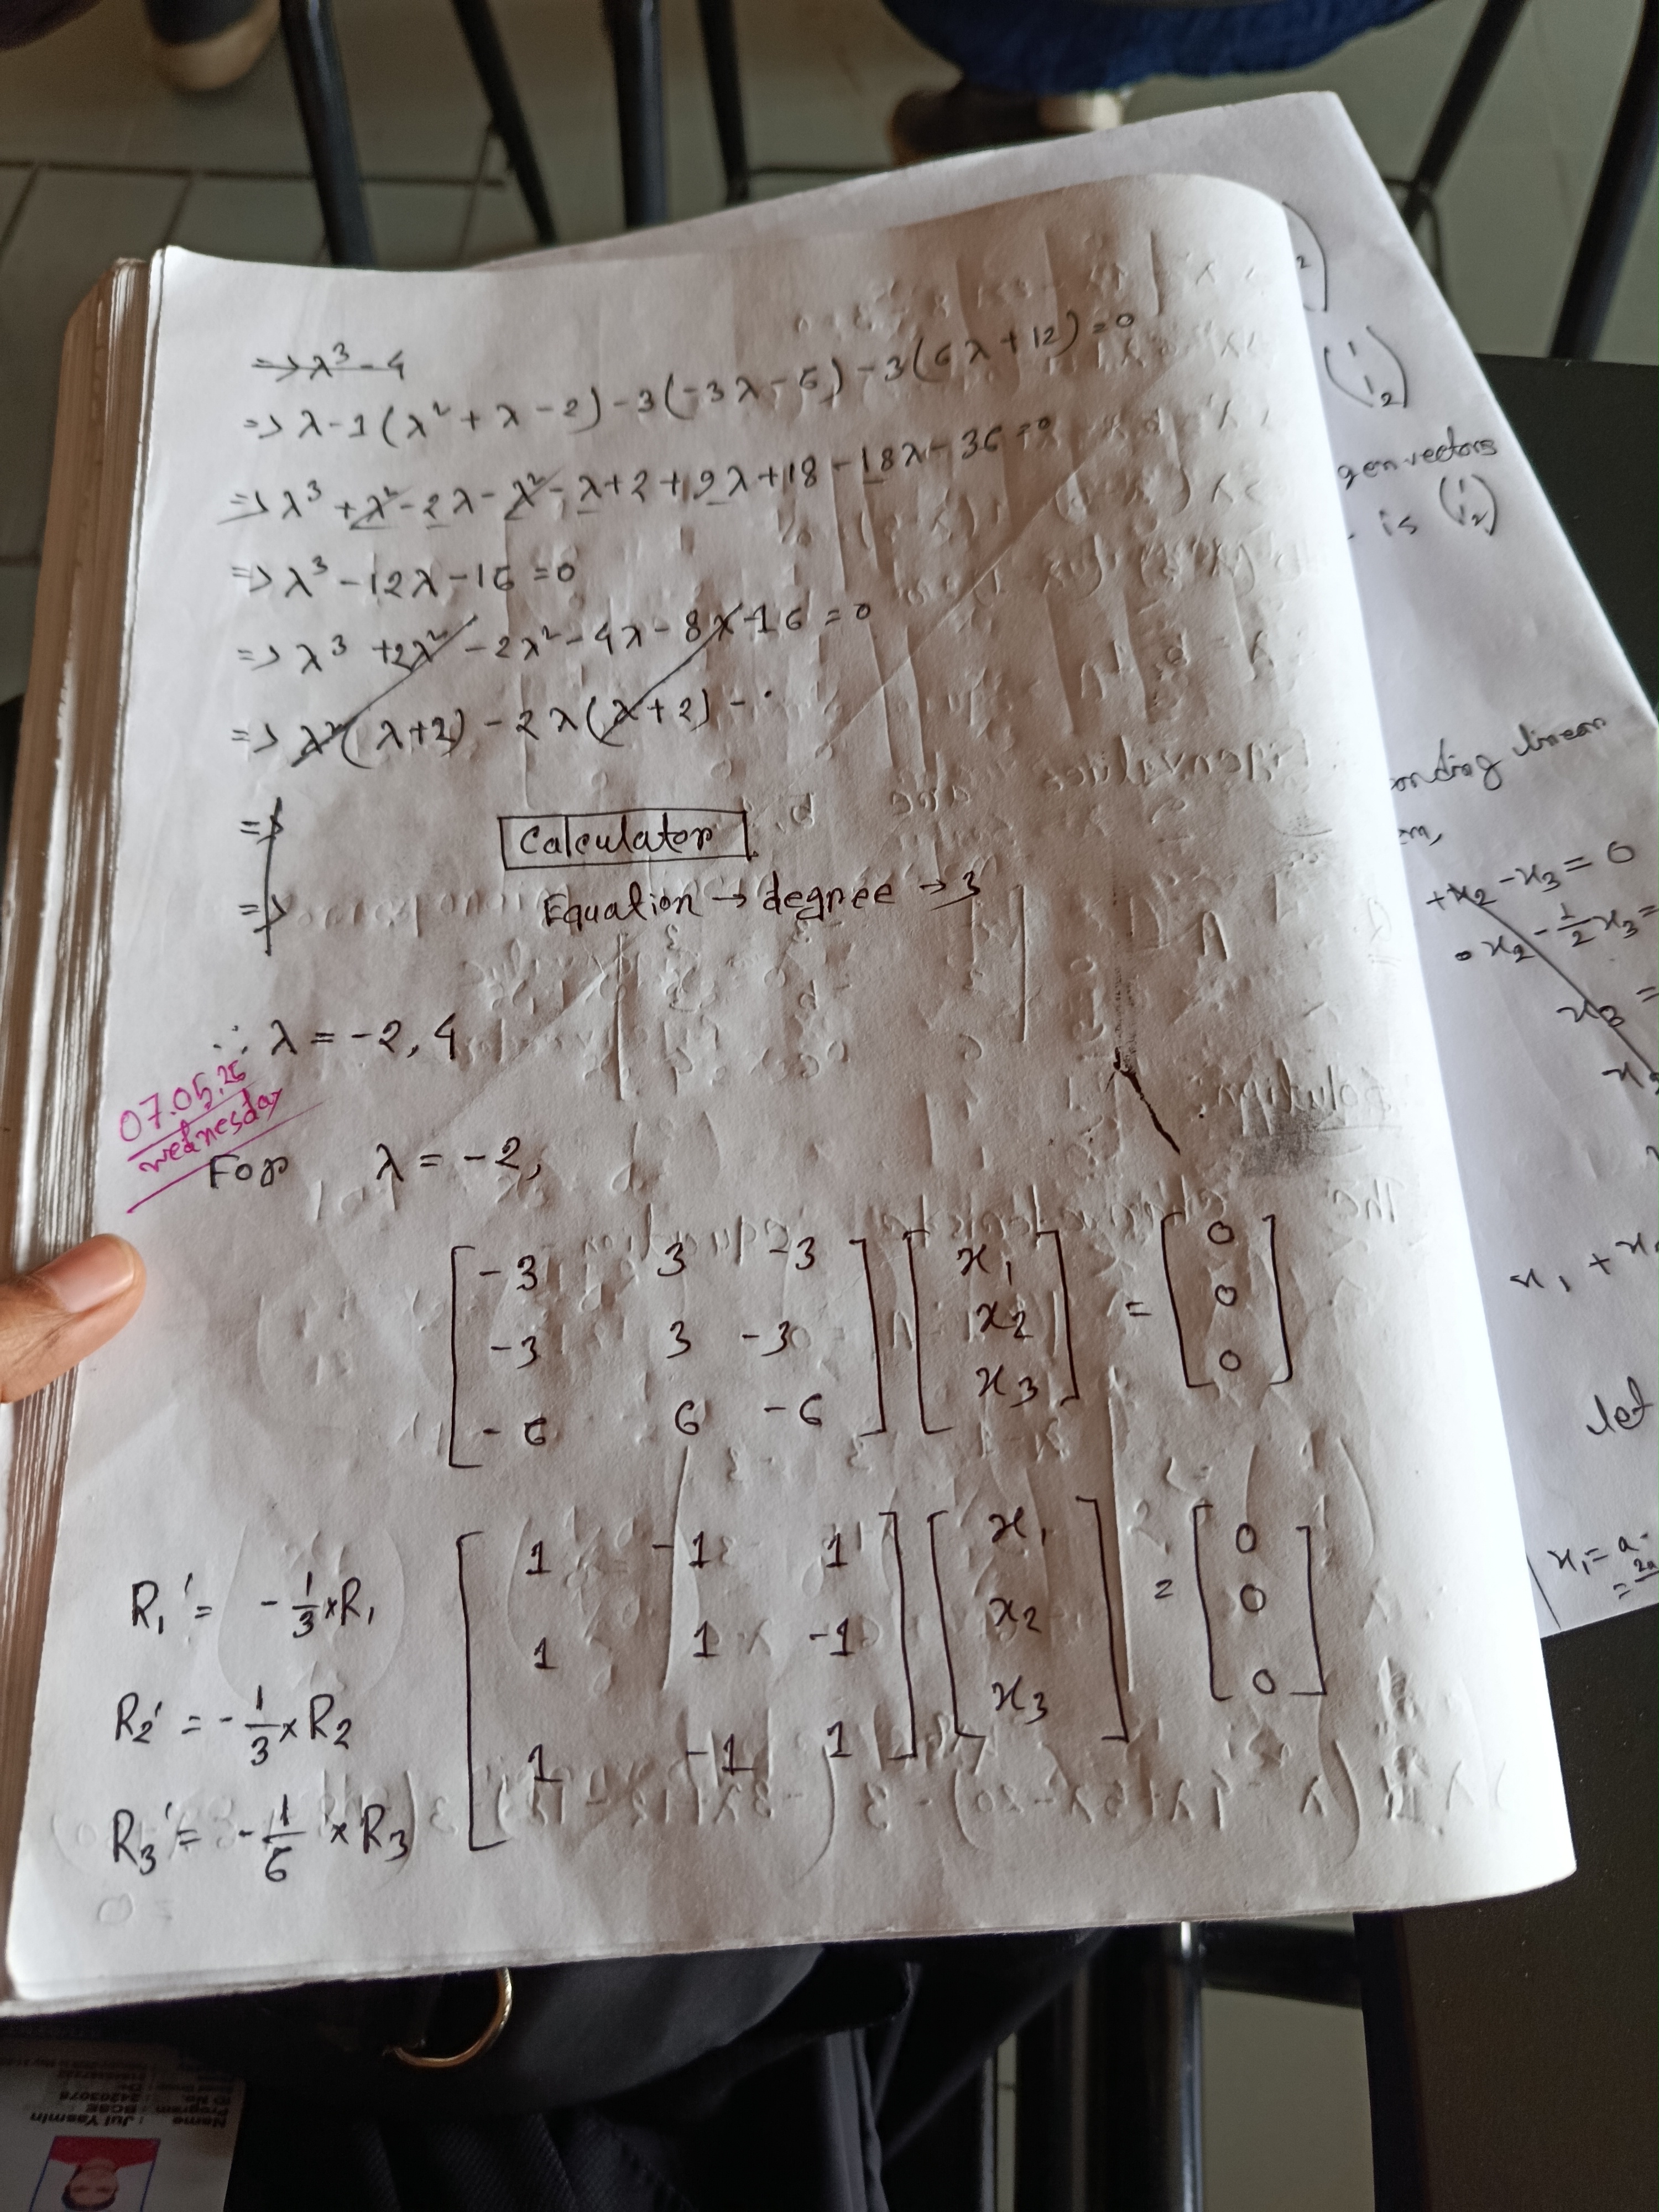 => λ³ - 4
=> λ-1(λ²+λ-2)-3(-3λ-6)-3(6λ+12)=0
=> λ³+λ²-2λ-λ²-λ+2+9λ+18-18λ-36=0
=> λ³-12λ-16=0
=> λ³+2λ²-2λ²-4λ-8λ-16=0
=> λ²(λ+2)-2λ(λ+2)-
=>
Calculator
=>
Equation → degree → 3
∴ λ = -2, 4
07.05.25
Wednesday
For λ = -2,
[-3 3 -3] [x₁] [0]
[-3 3 -3] [x₂] = [0]
[-6 6 -6] [x₃] [0]
R₁' = -1/3 × R₁ [1 -1 1] [x₁] [0]
R₂' = -1/3 × R₂ [1 1 -1] [x₂] = [0]
R₃' = -1/6 × R₃ [1 -1 1] [x₃] [0]
2
(1 1 2)
genvectors
is (1 1 2)
onding linear
em,
+x₂-x₃=0
x₂-1/2x₃=
x₃=
x₁+x
let
x₁=a-
=2a
Name : Jui Yasmin
Program : BCSE
ID No. : 24203078